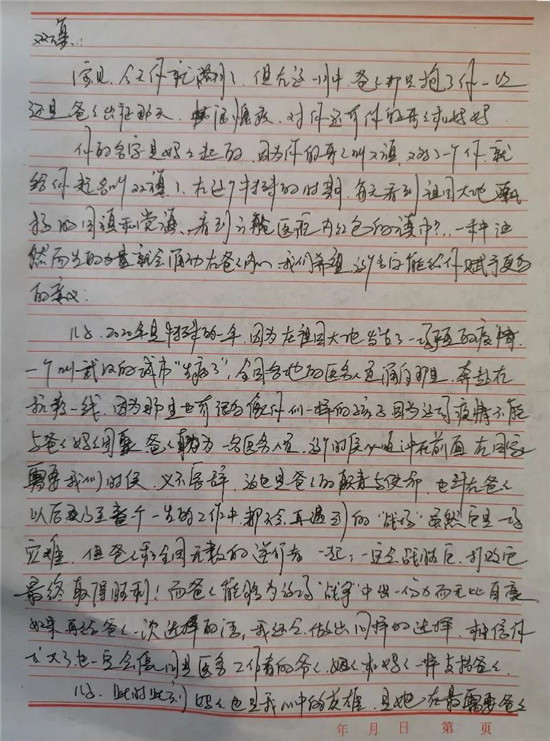 双旗:
宝贝,今天你就满月了,但在这一月中,爸爸却只抱了你一次
还是爸爸出征那天,对你还有你的哥哥和妈妈
你的名字是妈妈起的,因为你的哥哥叫一旗,又多了一个你,就
给你起名叫双旗了。在这个特殊的时期,每天看到祖国大地飘
扬的国旗和党旗,看到方舱医院内红色的一种油
然而生的力量就会涌动在爸爸内心,我们希望这个名字能给你赋予更多
的意义:
儿子,2020年是特殊的一年,因为在祖国大地发生了一场疫情
一个叫武汉的城市“生病了”,全国各地的医务人员涌向那里,奔赴在
抗疫一线,因为那里也有很多像你们一样的孩子因为这场疫情不能
与爸爸妈妈团聚,爸爸作为一名医务人员,这个时候必须冲在前面,在国家
需要我们的时候,义不容辞,这也是爸爸的职责与使命,也许在爸爸
以后乃至整个一生的工作中,都不会再遇到的“战场”虽然它是一场
灾难,但爸爸和全国无数的逆行者一起,一定会战胜它,打败它
最终取得胜利!而爸爸能够为这场“战争”中出一份力而无比自豪
如果再给爸爸一次选择的话,我还会做出同样的选择,相信你
长大了也一定会像同是医务工作者的爷爷、奶奶和妈妈一样支持爸爸。
儿子,此时此刻妈妈也是我心中的英雄,是她在最需要爸爸
年 月 日 第 页